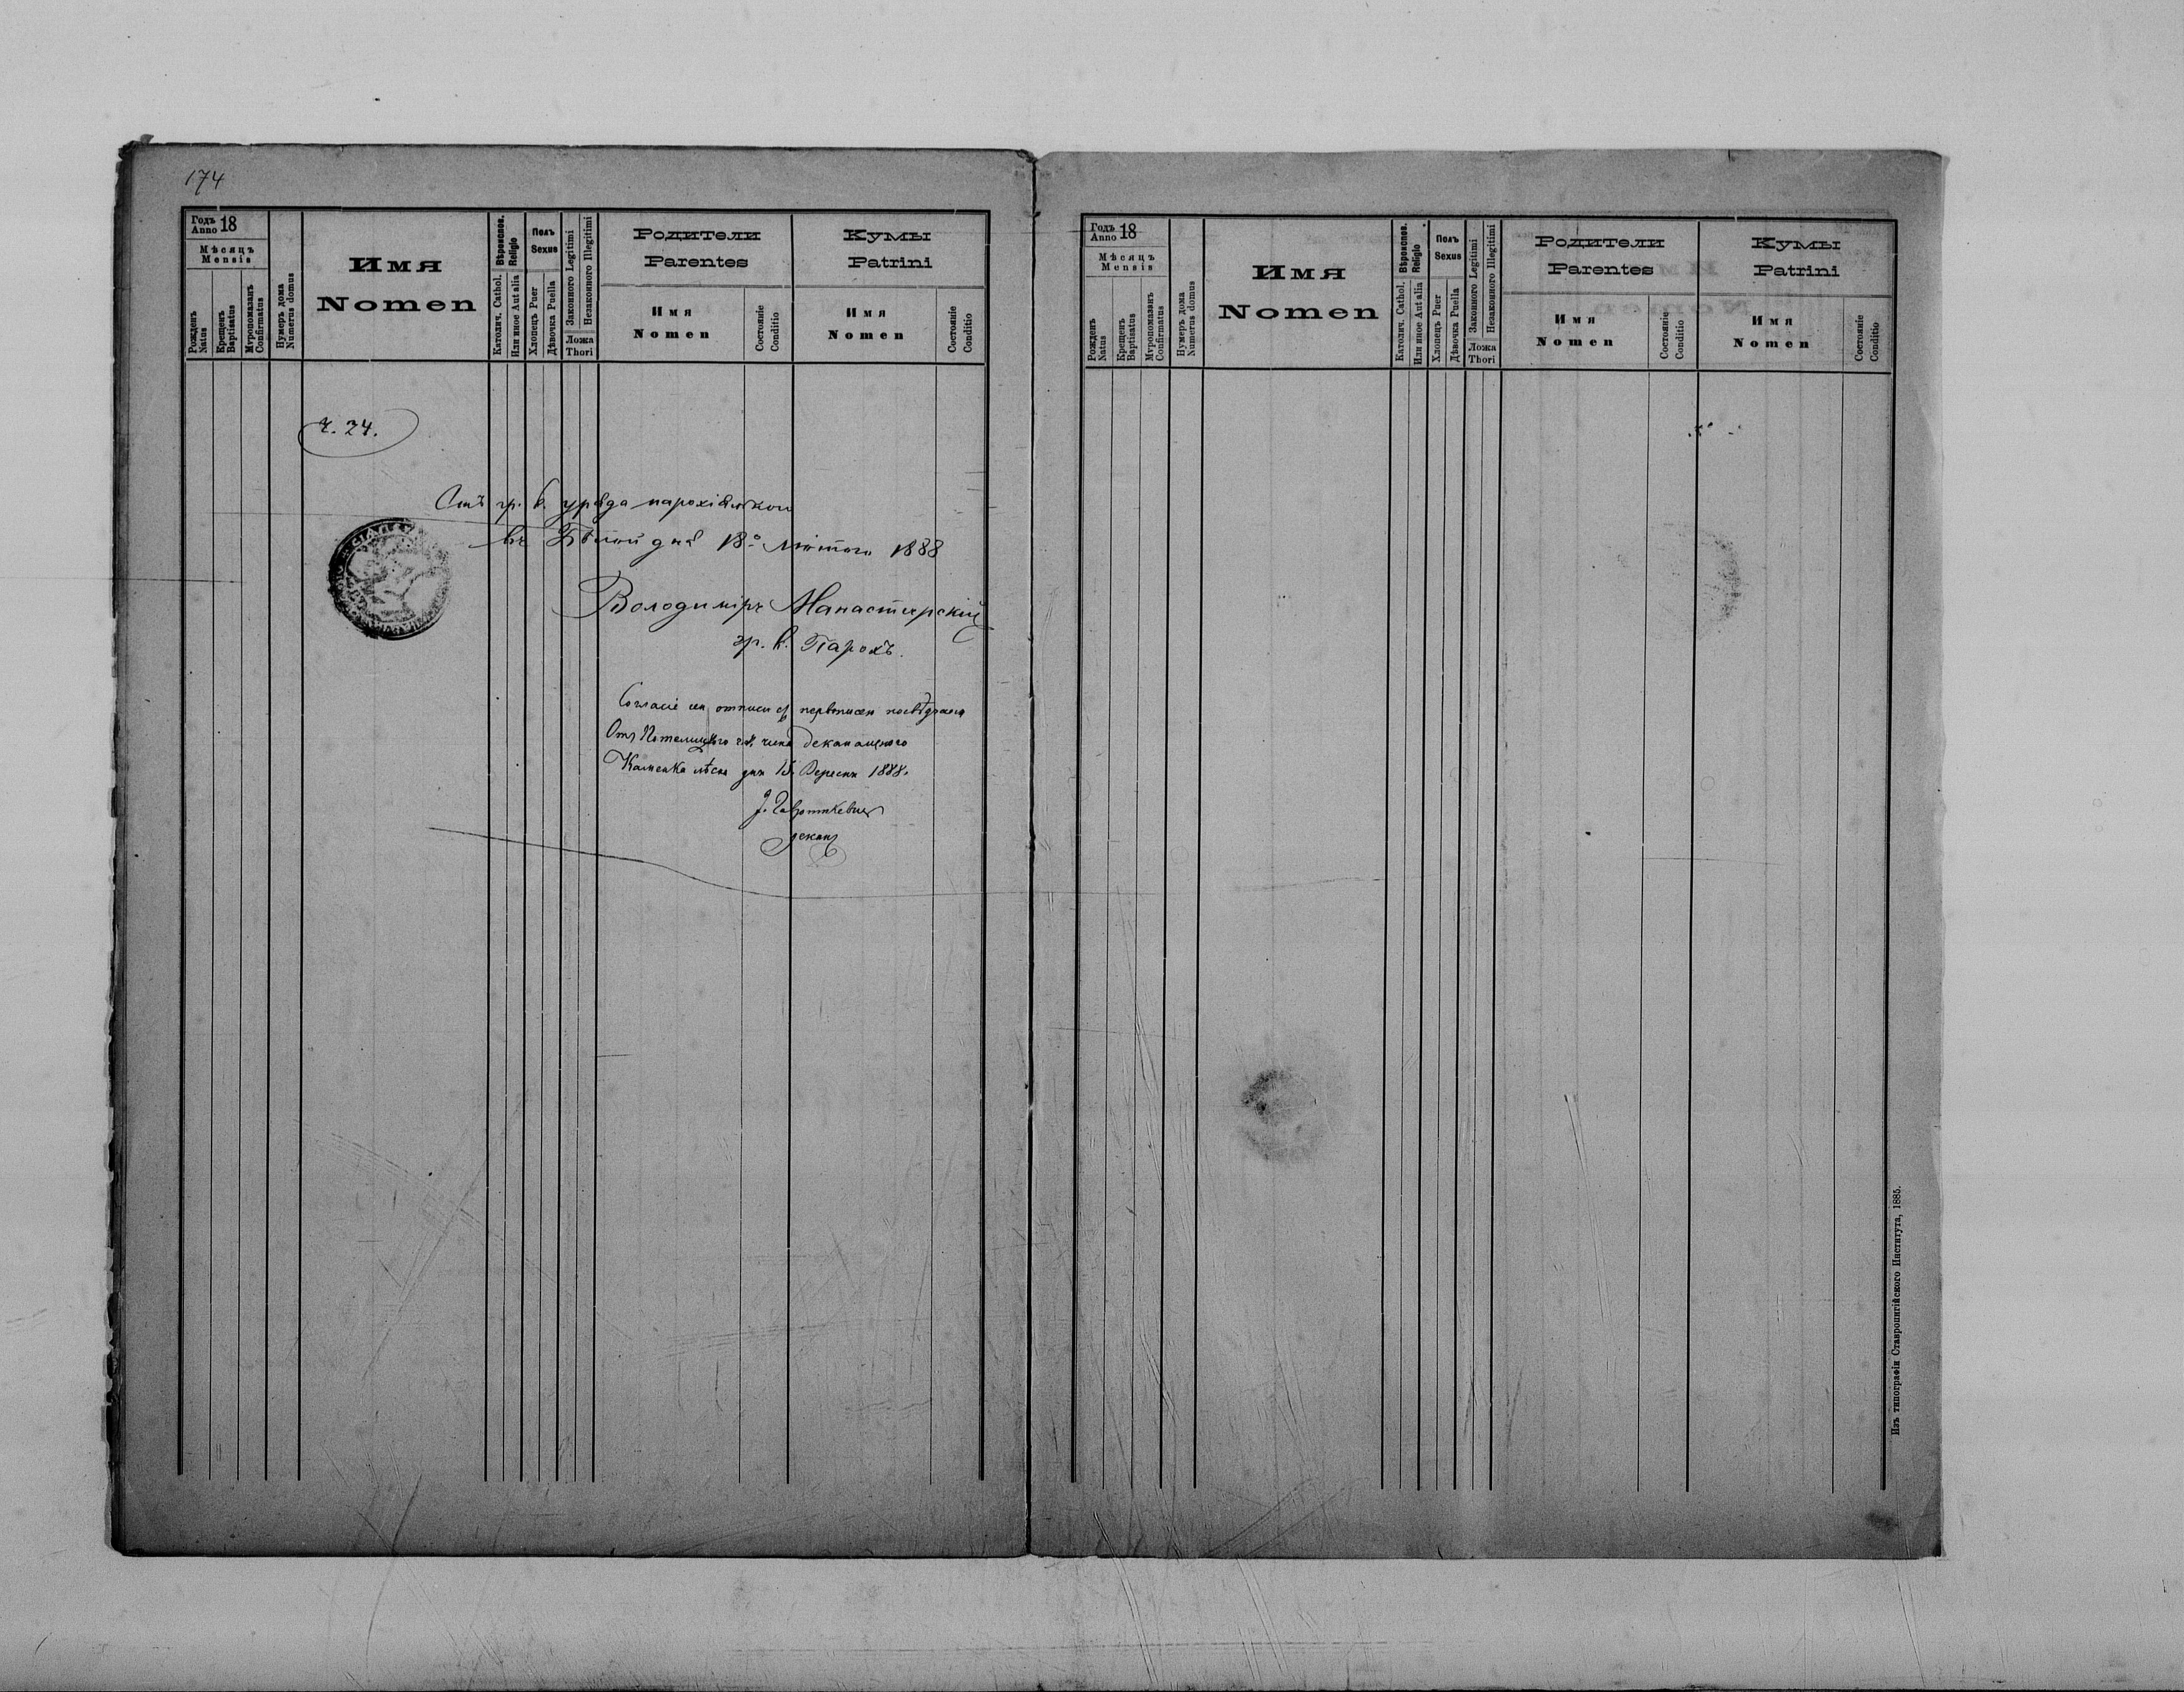 174
Годъ 18
Anno
Мѣсяцъ
Mensis
Рожденъ
Natus
Крещенъ
Baptisatus
Мѵропомазанъ
Confirmatus
Нумеръ дома
Numerus domus
Имя
Nomen
Вѣроиспов.
Religio
Католич. Cathol.
Или иное Aut alia
Полъ
Sexus
Хлопецъ Puer
Дѣвочка Puella
Законного Legitimi
Незаконного Illegitimi
Ложа
Thori
Родители
Parentes
Имя
Nomen
Состояніе
Conditio
Кумы
Patrini
Имя
Nomen
Состояніе
Conditio
ч. 24.
Отъ гр. к. уряда парохіяльного
въ Бѣлой дня 18º лютого 1888
Володимиръ Манастырскій
гр. к. Парохъ.
Согласіе сеи отписи съ первописею посвѣдчаеся
Отъ Потелицкого деканацкого
Каменка лѣсна дня 15. Вересня 1888.
деканъ
Годъ 18
Anno
Мѣсяцъ
Mensis
Рожденъ
Natus
Крещенъ
Baptisatus
Мѵропомазанъ
Confirmatus
Нумеръ дома
Numerus domus
Имя
Nomen
Вѣроиспов.
Religio
Католич. Cathol.
Или иное Aut alia
Полъ
Sexus
Хлопецъ Puer
Дѣвочка Puella
Законного Legitimi
Незаконного Illegitimi
Ложа
Thori
Родители
Parentes
Имя
Nomen
Состояніе
Conditio
Кумы
Patrini
Имя
Nomen
Состояніе
Conditio
Изъ типографіи Ставропигійского Института, 1885.